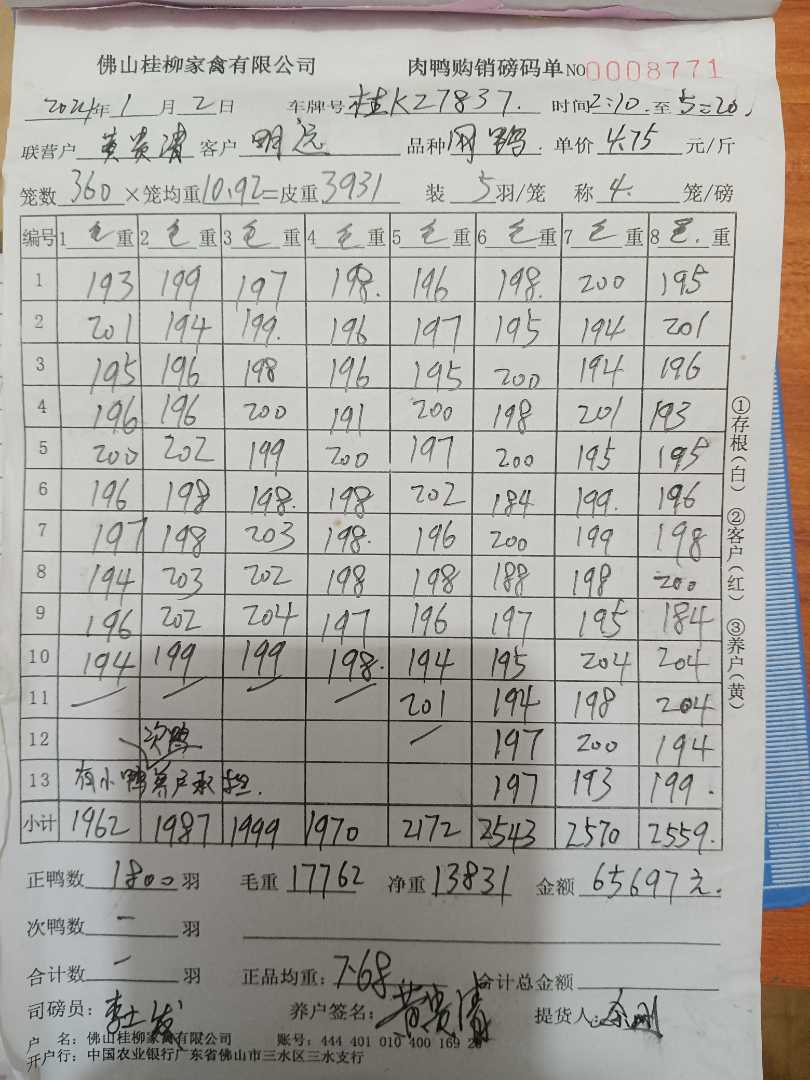 佛山桂柳家禽有限公司 肉鸭购销磅码单 NO 0008771
2024年 1 月 2 日 车牌号 桂K27837. 时间 2:10. 至 5:20.
联营户 黄贵清 客户 明远 品种 单价 4.75 元/斤
笼数 360 ×笼均重 10.92 =皮重 3931 装 5 羽/笼 称 4. 笼/磅
编号 1 毛 重 2 毛 重 3 毛 重 4 毛 重 5 毛 重 6 毛 重 7 毛 重 8 毛 重
1 193 199 197 198. 196 198. 200 195
2 201 194 199. 196 197 195 194 201
3 195 196 198 196 195 200 194 196
4 196 196 200 191 200 198 201 193
5 200 202 199 200 197 200 195 195
6 196 198 198. 198 202 184 199. 196
7 197 198 203 198. 196 200 199 198
8 194 203 202 198 198 188 198 200
9 196 202 204 197 196 197 195 184
10 194 199 199 198. 194 195 204 204
11 — — — — 201 194 198 204
12 次鸭 — 197 200 194
13 有小鸭养户承担. 197 193 199.
小计 1962 1987 1999 1970 2172 2543 2570 2559.
正鸭数 1800 羽 毛重 17762 净重 13831 金额 65697元.
次鸭数 — 羽
合计数 — 羽 正品均重: 7.68 合计总金额
司磅员: 李士发 养户签名: 黄贵清 提货人:
户 名: 佛山桂柳家禽有限公司 账号: 444 401 010 400 169 26
开户行: 中国农业银行广东省佛山市三水区三水支行
①存根(白) ②客户(红) ③养户(黄)